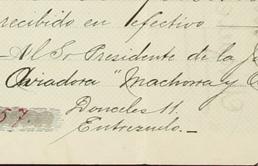 recibido en efectivo
Al Sr Presidente de la
Aviadora "Machorra y
Donceles 11.
57.
Entrezuelo.